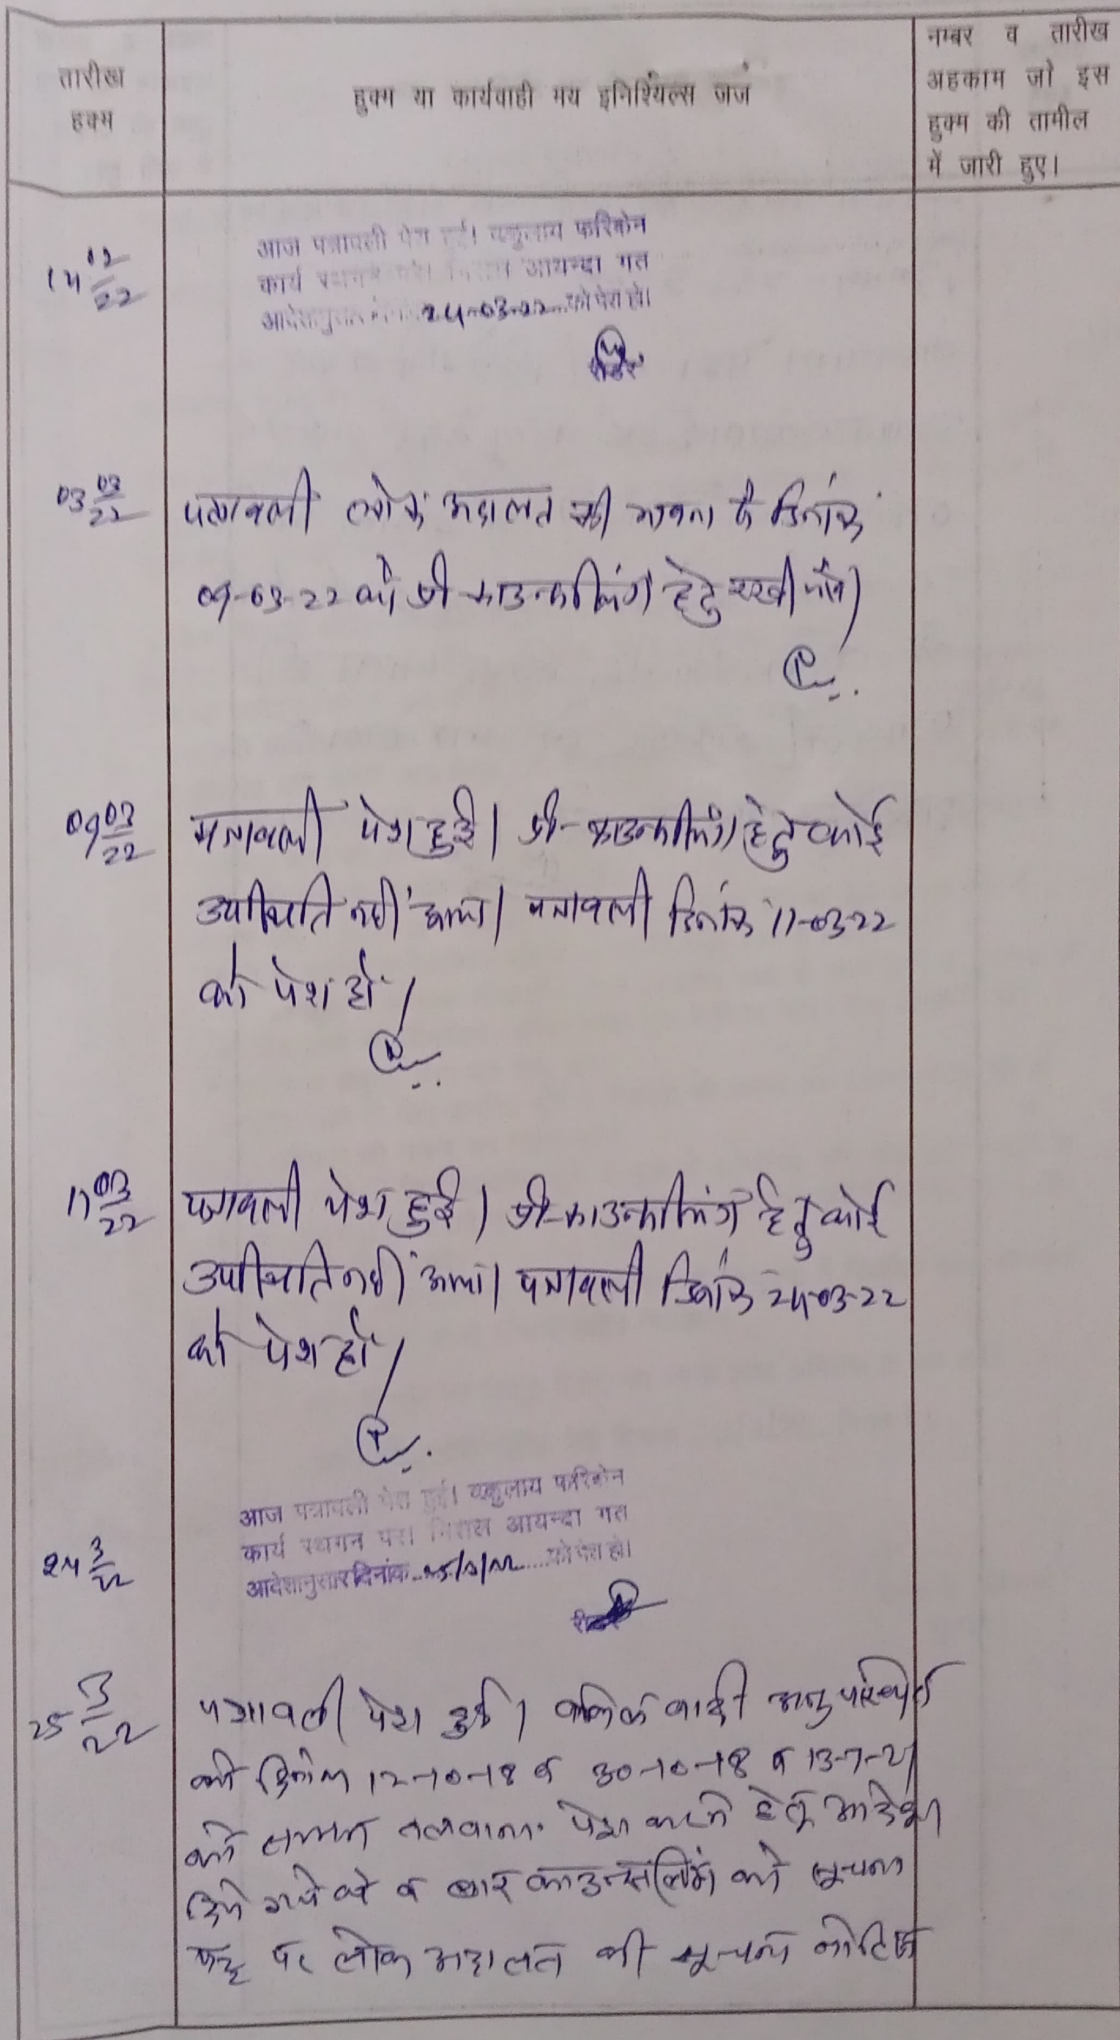 तारीख
हक्म
हुक्म या कार्यवाही मय इनिशियल्स जज
नम्बर व तारीख
अहकाम जो इस
हुक्म की तामील
में जारी हुए।
आज पत्रावली पेश हुई। वकुलाय फरिकेन
कार्य स्थगन पर। आयन्दा गत
आदेशानुसार 24-03-22 को पेश हो।
रीडर
03 03/22
पत्रावली लोक अदालत की भावना से दिनांक
09-03-22 को प्री-काउन्सलिंग हेतु रखी जावे।
09 03/22
पत्रावली पेश हुई। प्री-काउन्सलिंग हेतु कोई
उपस्थिति नहीं आया। पत्रावली दिनांक 11-03-22
को पेश हो।
11 03/22
पत्रावली पेश हुई। प्री-काउन्सलिंग हेतु कोई
उपस्थिति नहीं आया। पत्रावली दिनांक 24-03-22
को पेश हो।
आज पत्रावली पेश हुई। वकुलाय फरिकेन
कार्य स्थगन पर। आयन्दा गत
आदेशानुसार दिनांक को पेश हो।
24 3/22
25 3/22
पत्रावली पेश हुई। वादी अनुपस्थित
को दिनांक 12-10-18 व 30-10-18 व 13-7-21
को तलवाना पेश करने हेतु आदेश
दिये गये थे व काउन्सलिंग की सूचना
पर लोक अदालत की सूचना नोटिस